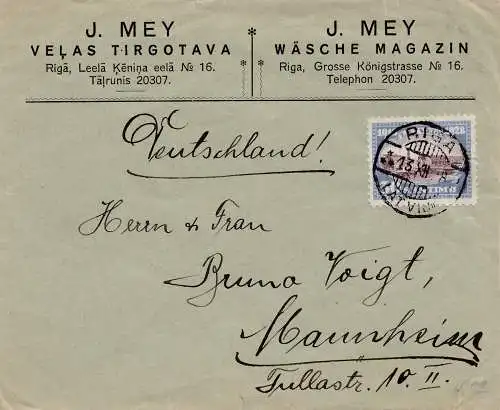 J. MEY
VEĻAS TIRGOTAVA
Rīgā, Leelā Ķēniņa eelā № 16.
Tāļrunis 20307.
J. MEY
WÄSCHE MAGAZIN
Riga, Grosse Königstrasse № 16.
Telephon 20307.
Deutschland!
RIGA
13 XII
LATVIJA
1928
Herrn & Frau
Bruno Voigt,
Mannheim
Tullastr. 10. II.